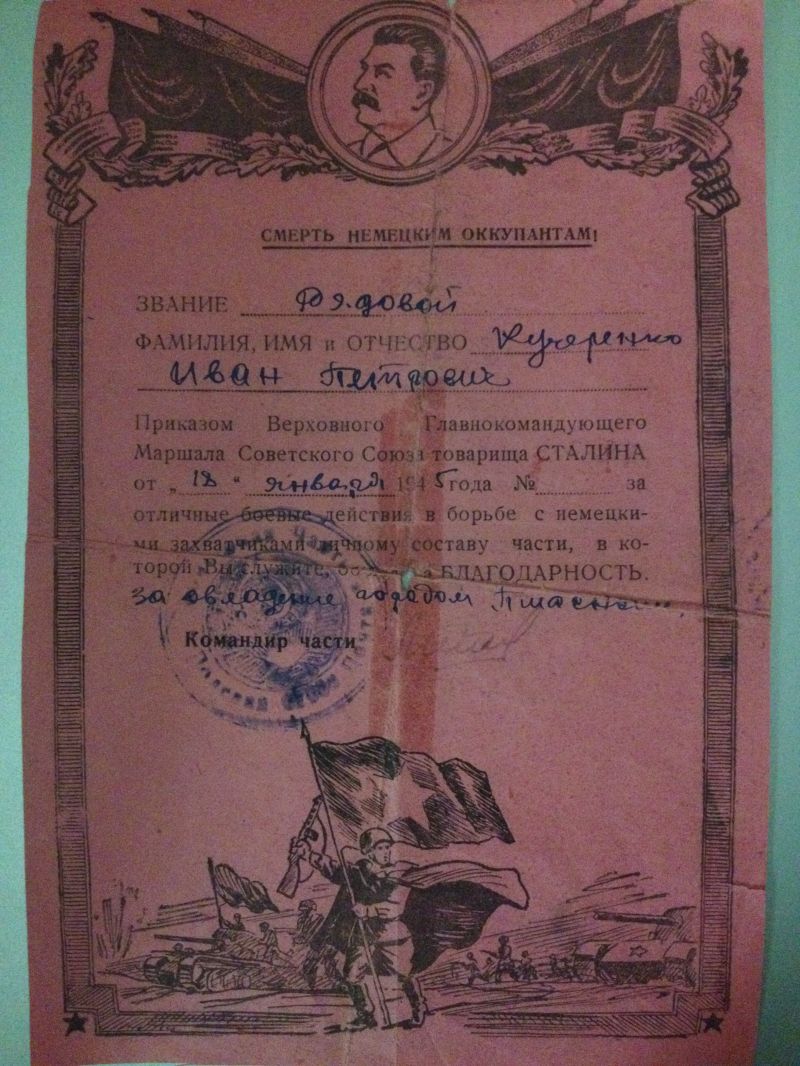 СМЕРТЬ НЕМЕЦКИМ ОККУПАНТАМ!
ЗВАНИЕ Рядовой
ФАМИЛИЯ, ИМЯ и ОТЧЕСТВО Кучеренко
Иван Петрович
Приказом Верховного Главнокомандующего
Маршала Советского Союза товарища СТАЛИНА
от „18" января 1945 года № за
отличные боевые действия в борьбе с немецки-
ми захватчиками личному составу части, в ко-
торой Вы служите, БЛАГОДАРНОСТЬ.
За овладение городом
Командир части